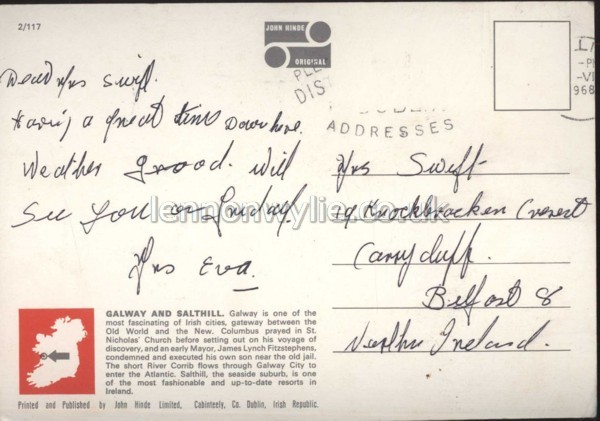 2/117
JOHN HINDE
ORIGINAL
PLE
DIST
ADDRESSES
-VI
968
Dear Mrs Swift.
Having a great time down here.
Weather good. Will
See you on Friday.
Yrs Eva
Mrs Swift
19 Knockbracken Cresent
Carryduff.
Belfast 8
Northn Ireland.
lennonwylie.co.uk
GALWAY AND SALTHILL. Galway is one of the
most fascinating of Irish cities, gateway between the
Old World and the New. Columbus prayed in St.
Nicholas' Church before setting out on his voyage of
discovery, and an early Mayor, James Lynch Fitzstephens,
condemned and executed his own son near the old jail.
The short River Corrib flows through Galway City to
enter the Atlantic. Salthill, the seaside suburb, is one
of the most fashionable and up-to-date resorts in
Ireland.
Printed and Published by John Hinde Limited, Cabinteely, Co. Dublin, Irish Republic.